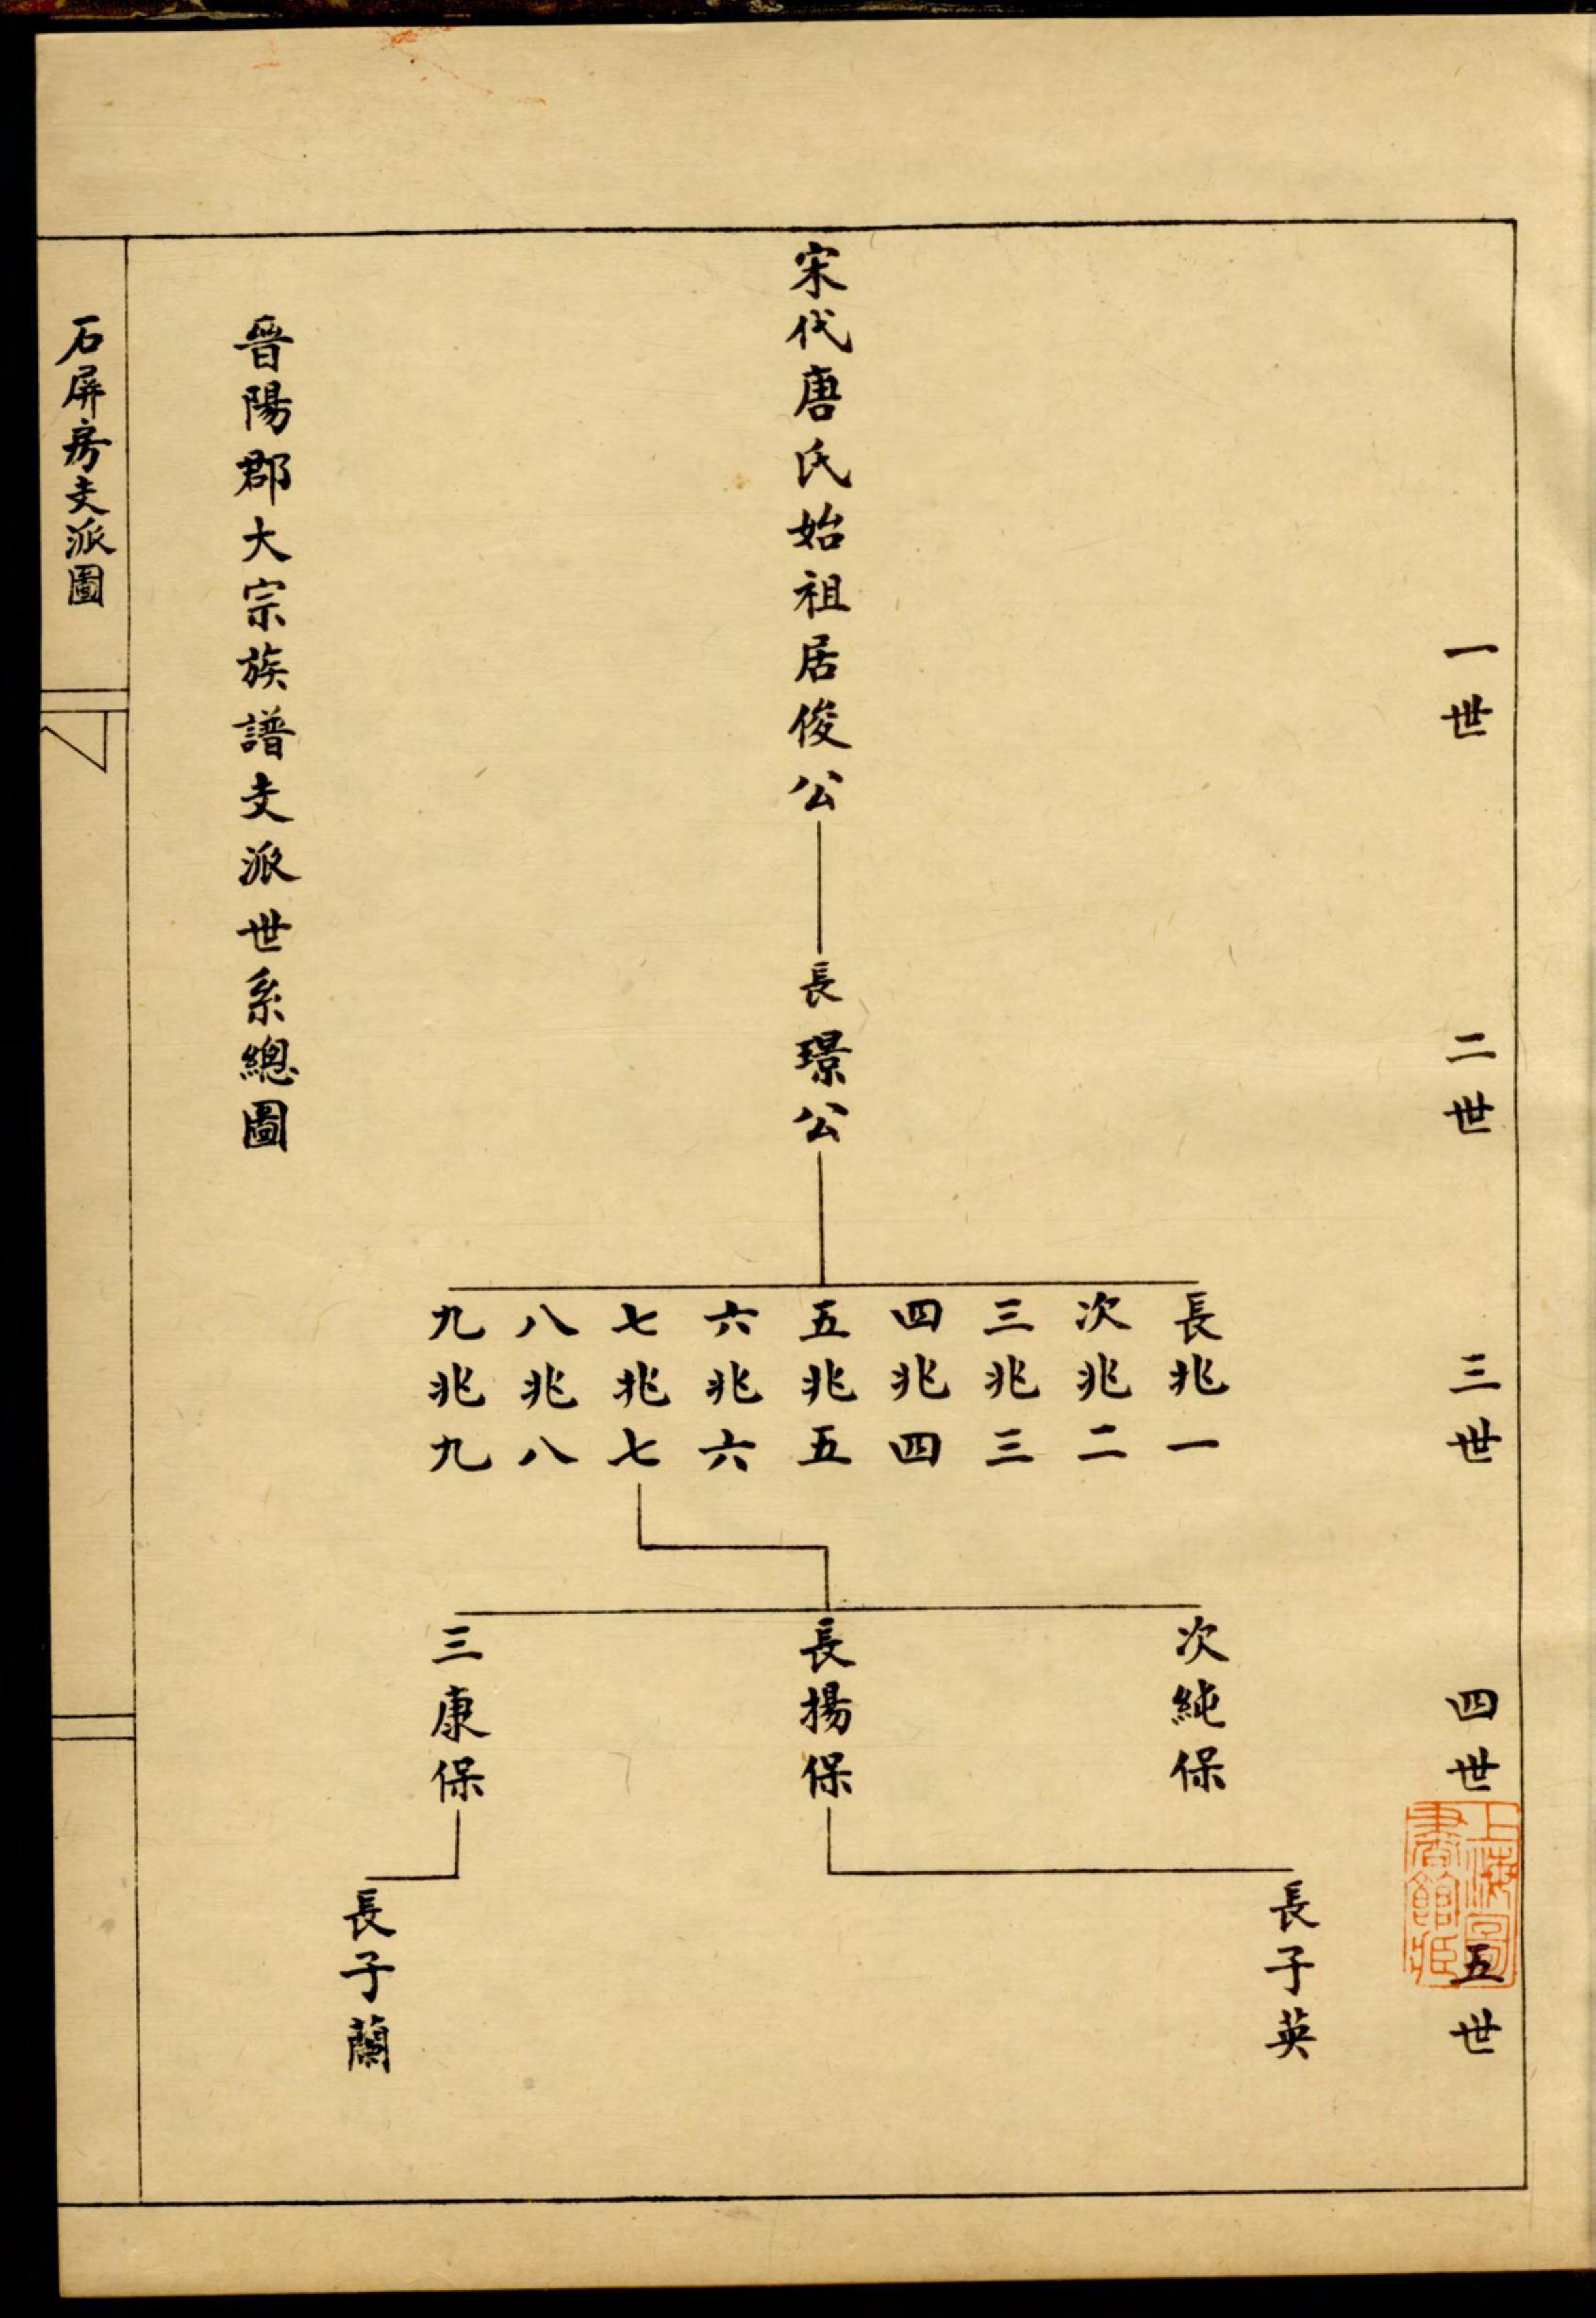 一世
二世
三世
四世
五世
宋代唐氏始祖居俊公
長璟公
長兆一
次兆二
三兆三
四兆四
五兆五
六兆六
七兆七
八兆八
九兆九
次純保
長揚保
三康保
長子英
長子蘭
晉陽郡大宗族譜支派世系總圖
石屏房支派圖
上海圖
書館藏